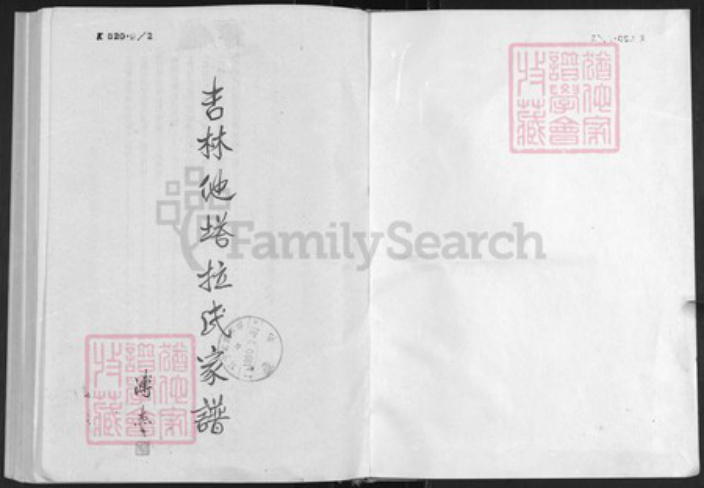 K 820·9/2
吉林他塔拉氏家譜
溥杰
猶他家
譜學會
收藏
猶他家
譜學會
收藏
FamilySearch